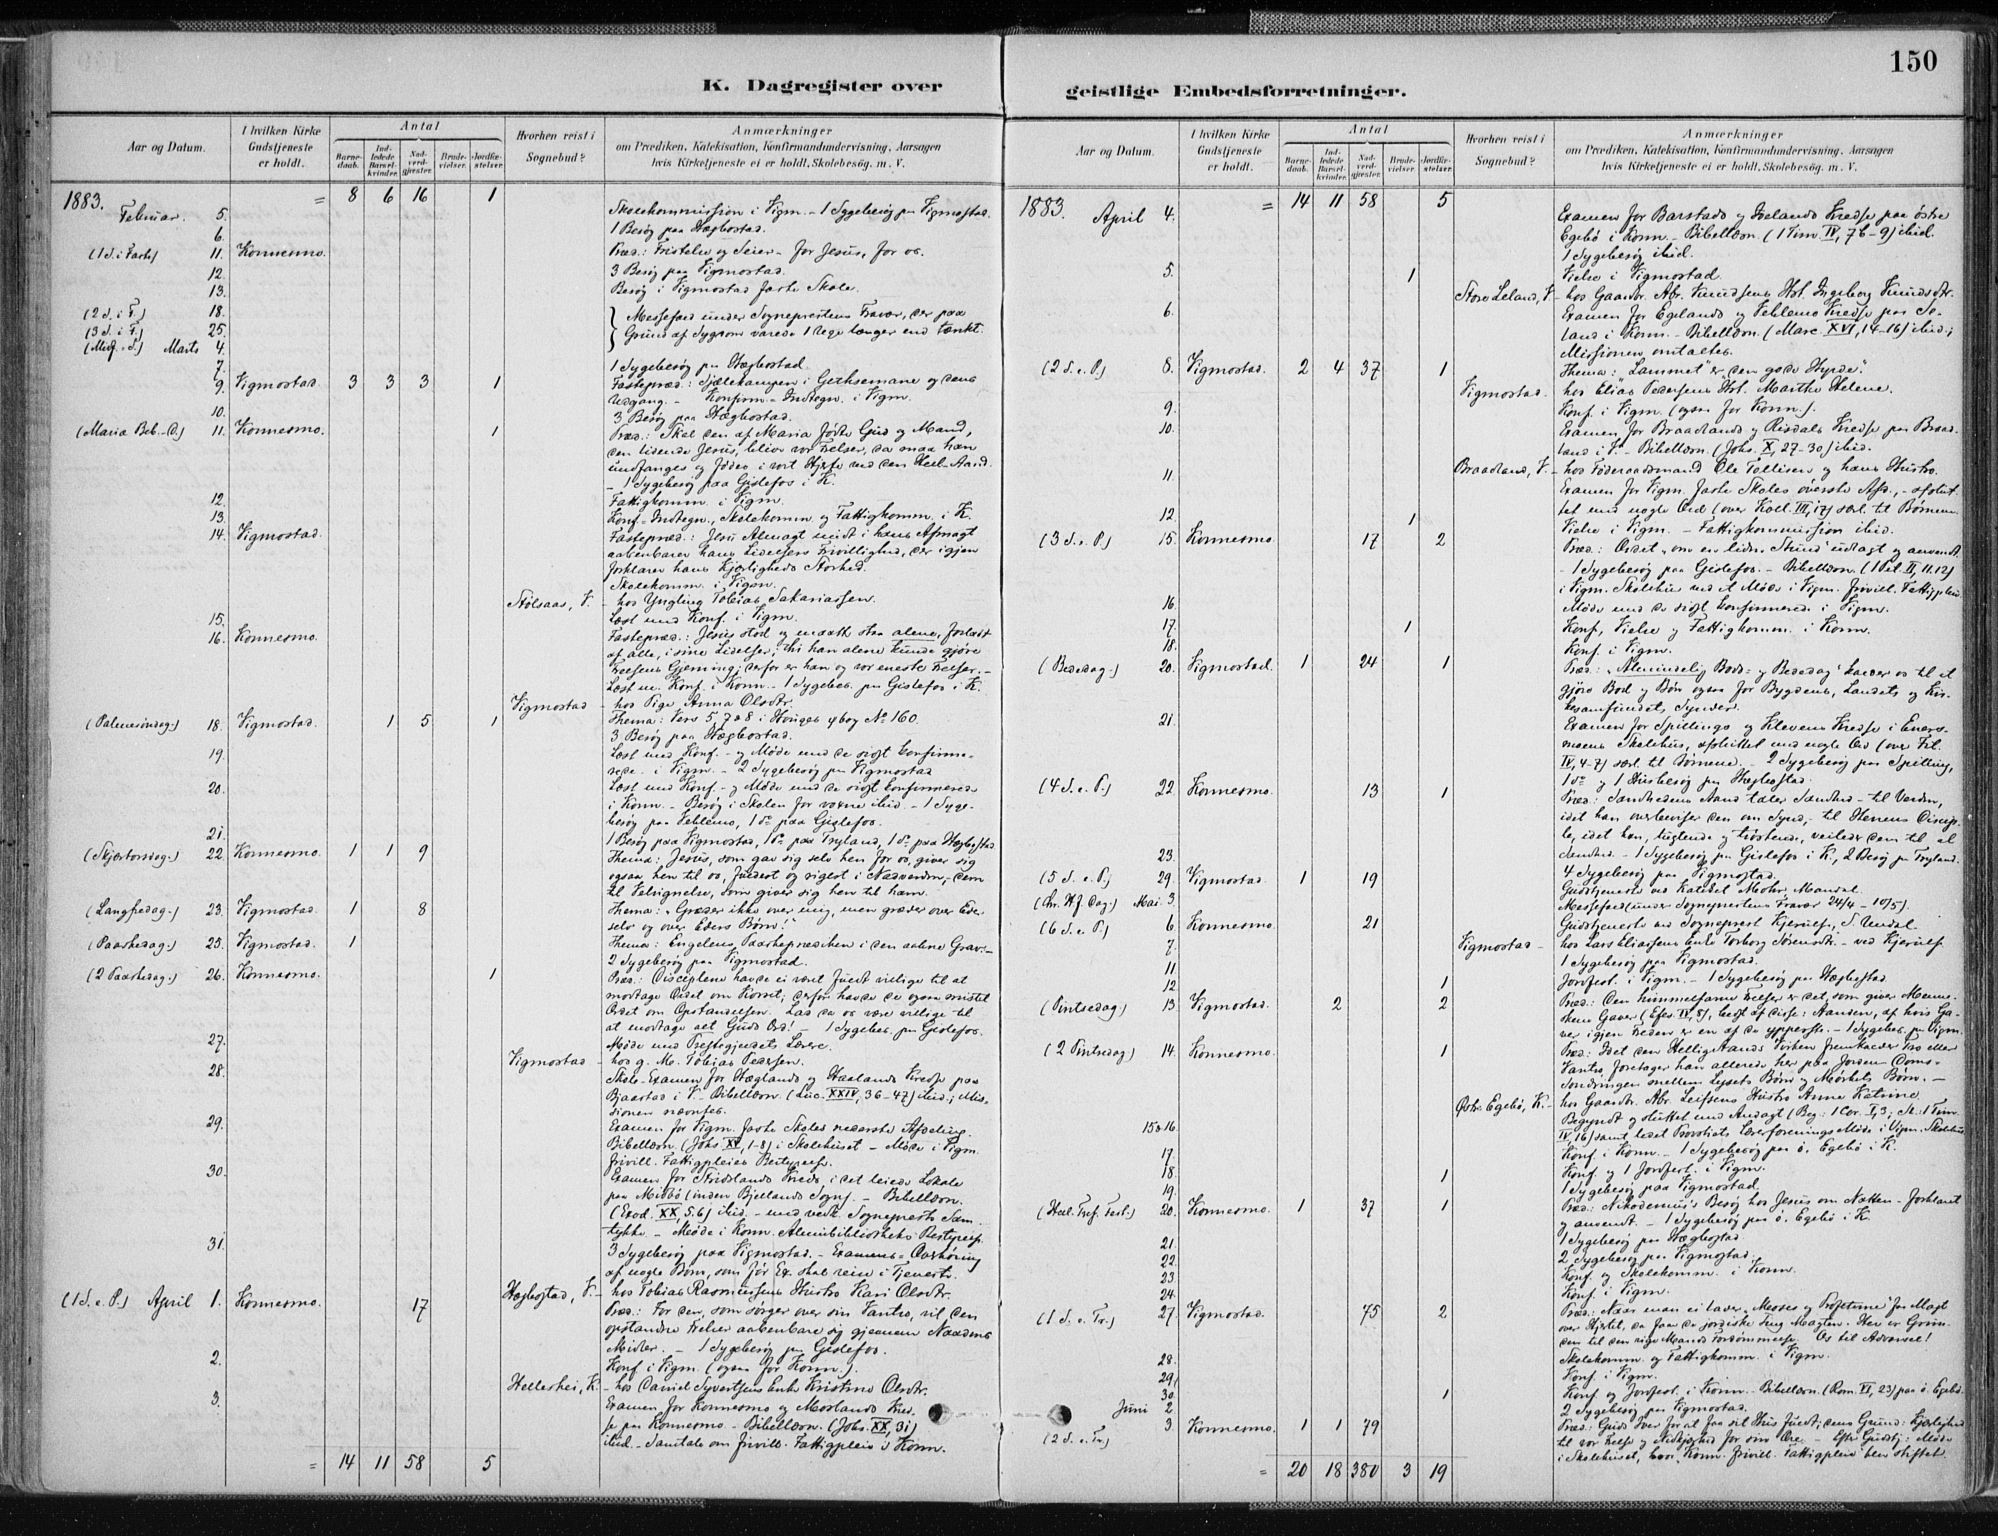 150
K. Dagregister over
geistlige Embedsforretninger.
Aar og Datum.
I hvilken Kirke Gudstjeneste er holdt.
Antal
Barnedaab.
Indledede Barselkvinder.
Nadverdgjester.
Brudevielser.
Jordfæstelser.
Hvorhen reist i Sognebud?
Anmærkninger
om Præediken, Katekisation, Konfirmandundervisning, Aarsagen
hvis Kirketjeneste ei er holdt, Skolebesög, m. V.
1883. = 8 6 16 1
Februar 5. Skolekommission i Vigm. - 1 Sygebesøg paa Vigmostad.
6. 1 Besøg paa Hægbostad.
(1 S. i Faste) 11. Konnesmo. Præd.: Fristelse og Seier - for Jesus, for os.
12. 3 Besøg paa Vigmostad.
13. Besøg i Vigmostad faste Skole.
(2 S. i F.) 18. Messefald under Sogneprestens Fravær, der paa
(3 S. i F.) 25. Grund af Sygdom varede 1 Uge længer end tænkt.
(Midf. S.) Marts 4.
7. 1 Sygebesøg paa Hægbostad.
9. Vigmostad. 3 3 3 1 Fastepræd.: Sjælekampen i Gethsemane og dens
Udgang. - Konfirm. Indtegn. i Vigm.
10. 3 Besøg paa Hægbostad.
(Maria Beb. D.) 11. Konnesmo. 1 Præd.: Skal den af Maria fødte Gud og Mand,
den lidende Jesus, blive vor Frelser, da maa han
undfanges og fødes i vort Hjerte ved den Hell. Aand.
- 1 Sygebesøg paa Gislefos i K.
12. Fattigkomm. i Vigm.
13. Konf. Indtegn., Skolekomm. og Fattigkomm. i K.
14. Vigmostad. Fastepræd.: Jesu Almagt midt i hans Afmagt
aabenbarer hans Lidelses Frivillighed, der igjen
forklarer hans Kjærligheds Storhed.
Skolekomm. i Vigm.
Stølsaas, V. - hos Yngling Tobias Sakariassen.
15. Læst med Konf. i Vigm.
16. Konnesmo. Fastepræd.: Jesus stod og maatte staa alene, forladt
af alle, i sine Lidelser, thi han alene kunde gjøre
Frelsens Gjerning; derfor er han og vor eneste Frelser. -
Læst m. Konf. i Konn. - 1 Sygebes. paa Gislefos i K.
Vigmostad - hos Pige Anna Olsdtr.
(Palmesøndag) 18. Vigmostad. 1 5 1 Thema: Vers 5, 7 o 8 i Hauges ψbog No 160.
3 Besøg paa Hægbostad.
19. Læst med Konf. - og Møde med de sidst konfirme-
rede i Vigm. - 2 Sygebesøg paa Vigmostad
20. Læst med Konf. - og Møde med de sidst konfirmerede
i Konn. - Besøg i Skolen for voxne ibid. - 1 Syge-
besøg paa Feblemo, 1 do paa Gislefos.
21. 1 Besøg paa Vigmostad, 1 do paa Tryland, 1 do paa Hægbostad
(Skjærtorsdag) 22. Konnesmo. 1 1 9 Thema: Jesus, som gav sig selv hen for os, giver sig
ogsaa hen til os, fuldest og rigest i Nadverden, - dem
til Velsignelse, som giver sig hen til ham.
(Langfredag) 23. Vigmostad. 1 8 Thema: "Græder ikke over mig, men græder over Eder
selv og over Eders Børn!"
(Paaskedag) 25. Vigmostad. 1 Thema: Engelens Paaskeprædiken i den aabne Grav. -
2 Sygebesøg paa Vigmostad.
(2 Paaskedag.) 26. Konnesmo. 1 Præd.: Disciplene havde ei været fuldt villige til at
modtage Ordet om Korset; derfor havde de ogsaa mistet
Ordet om Opstandelsen. Lad da os være villige til
at modtage alt Guds Ord! - 1 Sygebes. paa Gislefos.
27. Møde med Prestegjeldets Lærere.
Vigmostad - hos g. M. Tobias Pedersen.
28. Skole-Examen for Hæglands og Haalands Kredse paa
Bjaastad i V. - Bibellæsn. (Luc. XXIV, 36-47) ibid.; Mis-
sionen nævntes.
29. Examen for Vigm. faste Skoles nederste Afdeling.
Bibellæsn. (Johs. XV, 1-8) i Skolehuset - Møde i Vigm.
frivill. Fattigpleies Bestyrelse.
30. Examen for Stridslands Kreds, i det leiede Lokale
paa Midbø (inden Bjellands Sogn). - Bibellæsn.
(Exod. XX, 5.6) ibid. - med vedk. Sogneprests Sam-
tykke - Møde i Konn. Almubibliotheks Bestyrelse.
31. 3 Sygebesøg paa Vigmostad. - Examens-Overhøring
af nogle Børn, som før Ex. skal reise i Tjeneste.
Hægbostad, V. - hos Tobias Rasmussens Hustro Kari Olsdtr.
(1 S. e. P.) April 1. Konnesmo. 17 Præd.: For den, som sørger over sin Vantro, vil den
opstandne Frelser aabenbare sig gjennem Naadens
Midler. - 1 Sygebesøg paa Gislefos.
2. Konf. i Vigm. (ogsaa for Konn.).
Helleshei, K. - hos Daniel Syvertsens Enke Kristine Olsdtr.
3. Examen for Konnesmo og Moslands Kred-
se paa Konnesmo - Bibellæsn. (Johs. XX, 31)
ibid. - Samtale om frivill. Fattigpleie i Konn.
= 14 11 58 5
Aar og Datum.
I hvilken Kirke Gudstjeneste er holdt.
Antal
Barnedaab.
Indledede Barselkvinder.
Nadverdgjester.
Brudevielser.
Jordfæstelser.
Hvorhen reist i Sognebud?
Anmærkninger
om Prædiken, Katekisation, Konfirmandundervisning, Aarsagen
hvis Kirketjeneste ei er holdt, Skolebesög, m. V.
1883. = 14 11 58 5
April 4. Examen for Barstads og Ivelands Kredse paa østre
Egebø i Konn. - Bibellæsn. (1 Tim. IV, 7b-9) ibid.
1 Sygebesøg ibid.
5. 1 Vielse i Vigmostad.
Store Leland, V. - hos Gaardbr. Abr. Knudsens Hst. Ingeborg Knudsdtr.
6. Examen for Egelands og Feblemo Kredse paa Ege-
land i Konn. - Bibellæsn. (Marc. XVI, 14-16) ibid.;
Missionen omtaltes.
(2 S. e. P.) 8. Vigmostad. 2 4 37 1 Thema: "Lammet" er "den gode Hyrde."
Vigmostad. - hos Elias Pedersens Hst. Marthe Helene.
9. Konf. i Vigm. (ogsaa for Konn.).
10. Examen for Braadlands og Risdals Kredse paa Braad-
land i V. - Bibellæsn. (Johs. X, 27-30) ibid.
Braadland, V. - hos Føderaadsmand Ole Tollisen og hans Hustro.
11. Examen for Vigm. faste Skoles øverste Afd., - afslut-
tet med nogle Ord (over Koll. III, 17) særl. til Børnene.
12. 1 Vielse i Vigm. - Fattigkommission ibid.
(3 S. e. P.) 15. Konnesmo. 17 2 Præd.: Ordet "om en liden Stund" udlagt og anvendt.
- 1 Sygebesøg paa Gislefos. - Bibellæsn. (1 Pet. II, 11.12)
i Vigm. Skolehus ved et Møde i Vigm. frivill. Fattigpleie.
16. Møde med de sidst konfirmerede i Vigm.
17. 1 Konf., Vielse og Fattigkomm. i Konn.
18. Konf. i Vigm.
(Bededag) 20. Vigmostad. 1 24 1 Præd.: "Almindelig Bods- og Bededag" kalder os til at
gjøre Bod og Bøn ogsaa for Bygdens, Landets og Kir-
kesamfundets Synder.
21. Examen for Spillings og Klevens Kredse i Eners-
moens Skolehus, afsluttet med nogle Ord (over Fil.
IV, 4-7) særl. til Børnene. - 2 Sygebesøg paa Spilling,
1 do og 1 Husbesøg paa Hægbostad.
(4 S. e. P.) 22. Konnesmo. 13 1 Præd.: Sandhedens Aand taler Sandhed - til Verden,
idet han overbeviser den om Synd, - til Herrens Disciple,
idet han, tugtende og trøstende, veileder dem til al
Sandhed. - 1 Sygebesøg paa Gislefos i K., 2 Besøg paa Tryland.
23. 4 Sygebesøg paa Vigmostad.
(5 S. e. P.) 29. Vigmostad. 1 19 Gudstjeneste ved Katechet Mohr, Mandal.
(Kr. Hf. Dag) Mai 3. Messefald (under Sogneprestens Fravær 24/4 - 10/5).
(6 S. e. P.) 6. Konnesmo. 21 Gudstjeneste ved Sogneprest Kjerulf, S. Undal.
Vigmostad - hos Lars Eliassens Enke Torborg Sørensdtr. - ved Kjerulf.
7. 1 Sygebesøg paa Vigmostad.
11. Jordfest. i Vigm. - 1 Sygebesøg paa Hægbostad.
12 1
(Pintsedag) 13 Vigmostad. 2 2 Præd.: Den himmelfarne Frelser er det, som giver Menne-
skene Gaver (Efes. IV, 8), bedst af disse: Aanden, af hvis Ga-
ver igjen Freden er en af de ypperste. - 1 Sygebes. paa Vigm.
(2 Pintsedag) 14. Konnesmo. 1 Præd.: Idet den Helligaands Virken fremkalder Tro eller
Vantro, foretager han allerede her paa Jorden Doms-
Sondringen mellem Lysets Børn og Mørkets Børn. -
Østr. Egebø, K. - hos Gaardbr. Abr. Leifsens Hustro Anne Katrine.
15 o 16 Begyndt og sluttet med Andagt (Beg: 1 Cor. I, 3; Sl: 1 Tim.
IV, 16) samt ledet Provstiets Lærerforenings Møde i Vigm. Skolehus.
17. Konf. i Konn. - 1 Sygebesøg paa ø. Egebø i K.
18 1 Konf. og 1 Jordfest. i Vigm.
19. 1 Sygebesøg paa Vigmostad.
(Hel. Tref. Fest.) 20. Konnesmo. 1 37 1 Præd.: Nikodemus's Besøg hos Jesus om Natten - forklaret
og anvendt. - 1 Sygebesøg paa ø. Egebø i K.
21. 1 Sygebesøg paa Hægbostad
22. 2 Sygebesøg paa Vigmostad.
23 Konf. og Skolekomm. i Konn.
24. Konf. i Vigm.
(1 S. e. Tr.) 27. Vigmostad. 75 2 Præd.: Naar man ei lader "Moses og Profeterne" faa Magt
over Hjertet, da faar de jordiske Ting Magten. Her er Grun-
den til den rige Mands Fordømmelse. Os til Advarsel!
28. Skolekomm. og Fattigkomm. i Vigm.
29. Konf. i Vigm.
30. 1 Konf. og Jordfest. i Konn. - Bibellæsn. (Rom. VI, 23) paa ø. Egebø.
Juni 2 2 Sygebesøg paa Vigmostad.
(2 S. e. Tr.) 3. Konnesmo. 1 1 79 Præd.: Guds Iver for at faa sit Hus fuldt; dens Grund: Kjærlighed
til vor Frelse og Nidkjærhed for sin Ære. - Efter Gudstj.: Møde
i Skolehuset, hvor Konn. frivill. Fattigpleie blev stiftet.
= 20 18 380 3 19